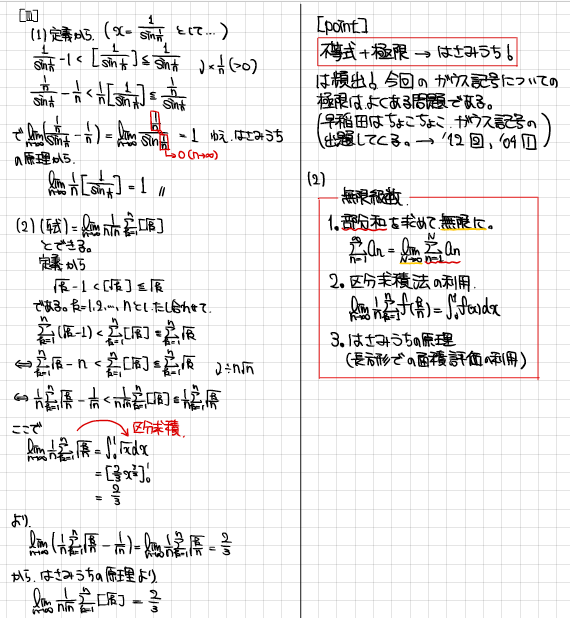 [1]
(1) 定義から (x = 1/sin(1/n) として…)
1/sin(1/n) - 1 < [1/sin(1/n)] ≦ 1/sin(1/n)
) × 1/n (>0)
(1/n)/sin(1/n) - 1/n < 1/n [1/sin(1/n)] ≦ (1/n)/sin(1/n)
で lim_{n→∞} ((1/n)/sin(1/n) - 1/n) = lim_{n→∞} (1/n)/sin(1/n) = 1 ゆえ、はさみうち
→ 0 (n→∞)
の原理から、
lim_{n→∞} 1/n [1/sin(1/n)] = 1 //
(2) (与式) = lim_{n→∞} 1/(n√n) Σ_{k=1}^{n} [√k]
とできる。
定義から
√k - 1 < [√k] ≦ √k
である。k=1,2,…,n とし、たし合わせて、
Σ_{k=1}^{n} (√k - 1) < Σ_{k=1}^{n} [√k] ≦ Σ_{k=1}^{n} √k
⇔ Σ_{k=1}^{n} √k - n < Σ_{k=1}^{n} [√k] ≦ Σ_{k=1}^{n} √k
) ÷ n√n
⇔ 1/n Σ_{k=1}^{n} √(k/n) - 1/√n < 1/(n√n) Σ_{k=1}^{n} [√k] ≦ 1/n Σ_{k=1}^{n} √(k/n)
ここで
区分求積
lim_{n→∞} 1/n Σ_{k=1}^{n} √(k/n) = ∫_0^1 √x dx
= [2/3 x^{3/2}]_0^1
= 2/3
より、
lim_{n→∞} (1/n Σ_{k=1}^{n} √(k/n) - 1/√n) = lim_{n→∞} 1/n Σ_{k=1}^{n} √(k/n) = 2/3
から、はさみうちの原理より
lim_{n→∞} 1/(n√n) Σ_{k=1}^{n} [√k] = 2/3
[point]
不等式+極限 → はさみうち!
は頻出! 今回の ガウス記号についての
極限は、よくある問題である。
(早稲田はちょこちょこ、ガウス記号の
出題してくる。→ '12 [2], '04 [1])
(2)
無限級数
1. 部分和を求めて無限に。
Σ_{n=1}^{∞} an = lim_{N→∞} Σ_{n=1}^{N} an
2. 区分求積法の利用
lim_{n→∞} 1/n Σ_{k=1}^{n} f(k/n) = ∫_0^1 f(x)dx
3. はさみうちの原理
(長方形での面積評価の利用)